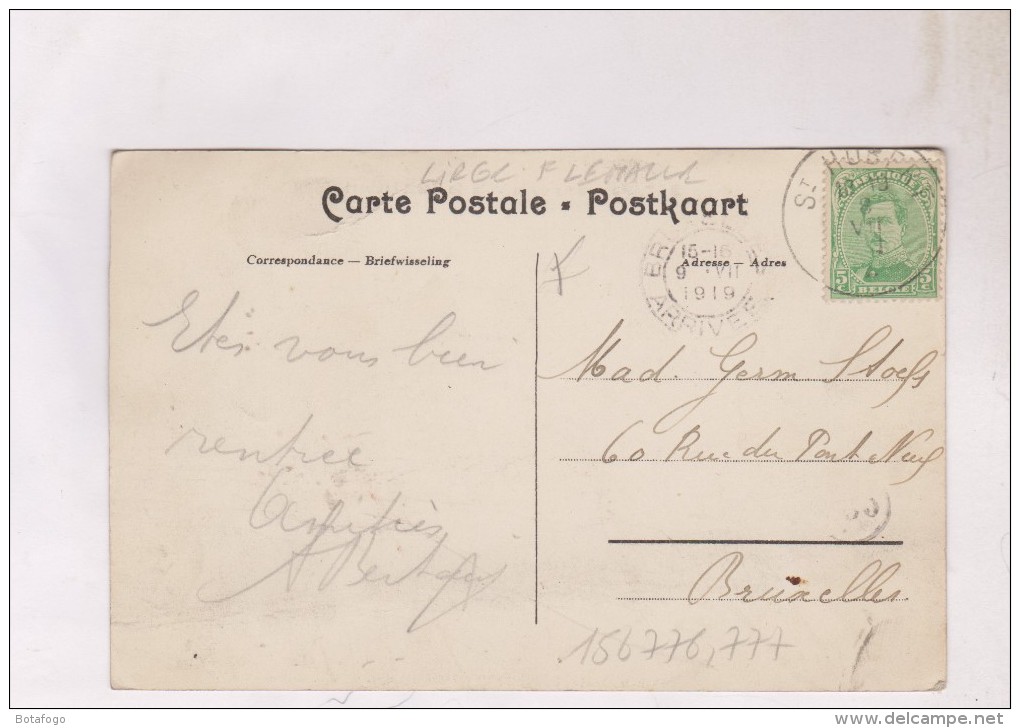 LIEGE FLEMALLE
Carte Postale - Postkaart
Correspondance — Briefwisseling
Adresse — Adres
ST HUBERT
BELGIQUE
5c 5c
BELGIË
15-16
9 VII
1919
ARRIVEE
Etes vous bien
rentrée
Amitiés
Mad. Germ Stoefs
60 Rue du Pont Neuf
Bruxelles
156776,777
Botafogo
www.delcampe.net